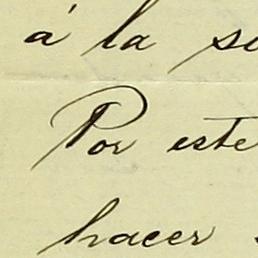 á la se
Por este
hacer